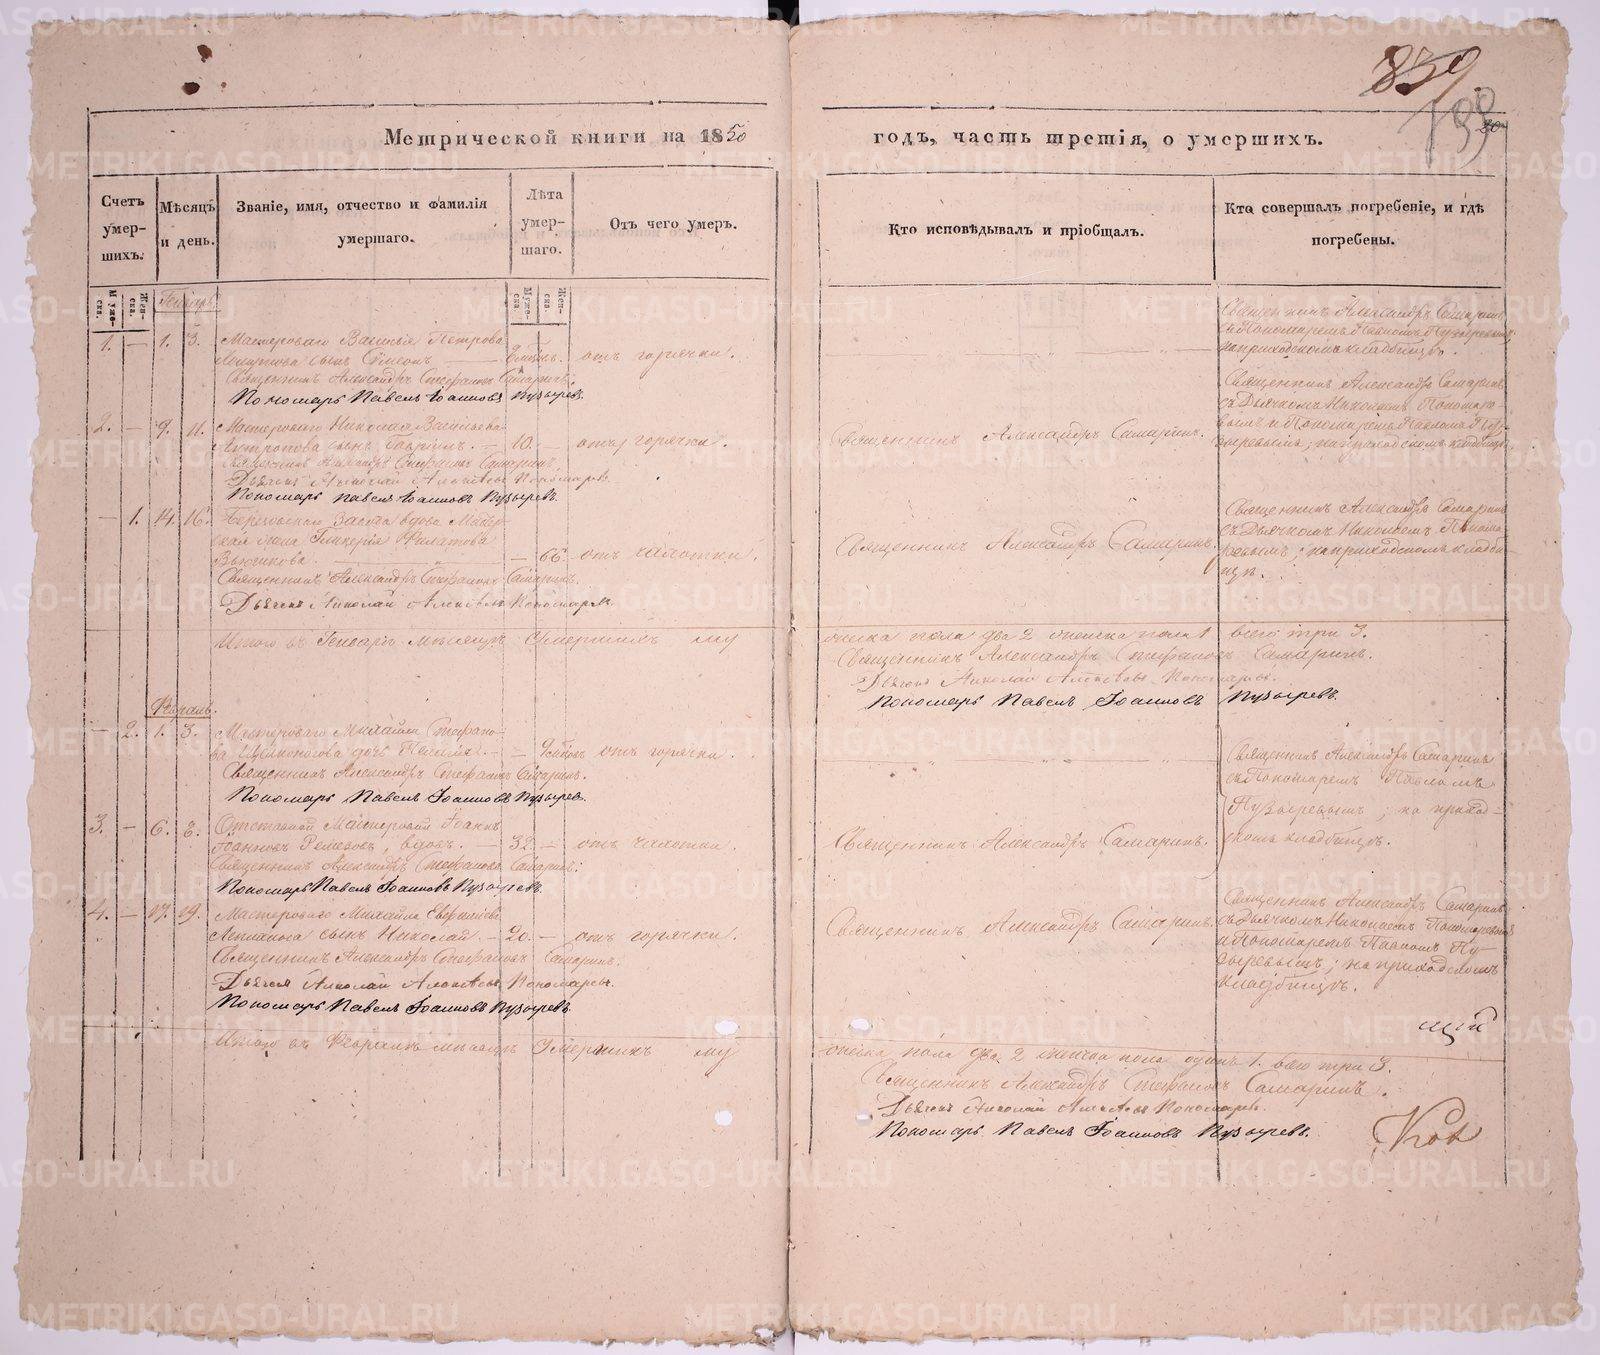 839
199
80
Метрической книги на 1850
годъ, часть третія, о умершихъ.
Счетъ умер-шихъ.
Мѣсяцъ и день.
Званіе, имя, отчество и фамилія умершаго.
Лѣта умер-шаго.
Отъ чего умеръ.
Кто исповѣдывалъ и пріобщалъ.
Кто совершалъ погребеніе, и гдѣ погребены.
Муже-ска.
Жен-ска.
Муже-ска.
Жен-ска.
Генварь
1. — 1. 3. Мастероваго Василья Петрова
сынъ Симеонъ — отъ горячки.
Священникъ Александръ Стефановъ Самаринъ.
Пономарь Павелъ Іоанновъ Пузыревъ.
Священникъ Александръ Самаринъ
съ Пономаремъ Павломъ Пузыревымъ;
на приходскомъ кладбищѣ.
2. — 9. 11. Мастероваго Николая Васильева
Антропова сынъ Гавріилъ. — 10. — отъ горячки.
Священникъ Александръ Стефановъ Самаринъ.
Дьячекъ Николай Алексѣевъ Пономаревъ.
Пономарь Павелъ Іоанновъ Пузыревъ.
Священникъ Александръ Самаринъ.
Священникъ Александръ Самаринъ
съ Дьячкомъ Николаемъ Пономаре-
вымъ и Пономаремъ Павломъ Пу-
зыревымъ; на приходскомъ кладбищѣ
— 1. 14. 16. вдова Мастер-
ская жена Гликерія Филатова
Вьюшкова. — 66. отъ чахотки.
Священникъ Александръ Стефановъ Самаринъ.
Дьячекъ Николай Алексѣевъ Пономаревъ.
Священникъ Александръ Самаринъ.
Священникъ Александръ Самаринъ
съ Дьячкомъ Николаемъ Понома-
ревымъ; на приходскомъ кладби-
щѣ.
Итого въ Генварѣ мѣсяцѣ Умершихъ му
жеска пола два 2 женска пола 1 всего три 3.
Священникъ Александръ Стефановъ Самаринъ.
Дьячекъ Николай Алексѣевъ Пономаревъ.
Пономарь Павелъ Іоанновъ Пузыревъ.
Февраль.
— 2. 1. 3. Мастероваго Михаила Стефано-
ва дочь Пелагія. — отъ горячки.
Священникъ Александръ Стефановъ Самаринъ.
Пономарь Павелъ Іоанновъ Пузыревъ.
Священникъ Александръ Самаринъ
съ Пономаремъ Павломъ
Пузыревымъ; на приход-
скомъ кладбищѣ.
3. — 6. 8. Отставной Мастеровой Іоаннъ
Іоанновъ Ремезовъ, вдовъ. — 32. — отъ чахотки.
Священникъ Александръ Стефановъ Самаринъ.
Пономарь Павелъ Іоанновъ Пузыревъ.
Священникъ Александръ Самаринъ.
4. — 17. 19. Мастероваго Михаила
сынъ Николай. — 20. — отъ горячки.
Священникъ Александръ Стефановъ Самаринъ.
Дьячекъ Николай Алексѣевъ Пономаревъ.
Пономарь Павелъ Іоанновъ Пузыревъ.
Священникъ Александръ Самаринъ.
Священникъ Александръ Самаринъ
съ Дьячкомъ Николаемъ Пономаревымъ
и Пономаремъ Павломъ Пу-
зыревымъ; на приходскомъ
кладбищѣ.
Итого въ Февралѣ мѣсяцѣ Умершихъ му
жеска пола два 2 женска пола одинъ 1. всего три 3.
Священникъ Александръ Стефановъ Самаринъ.
Дьячекъ Николай Алексѣевъ Пономаревъ.
Пономарь Павелъ Іоанновъ Пузыревъ.
METRIKI.GASO-URAL.RU